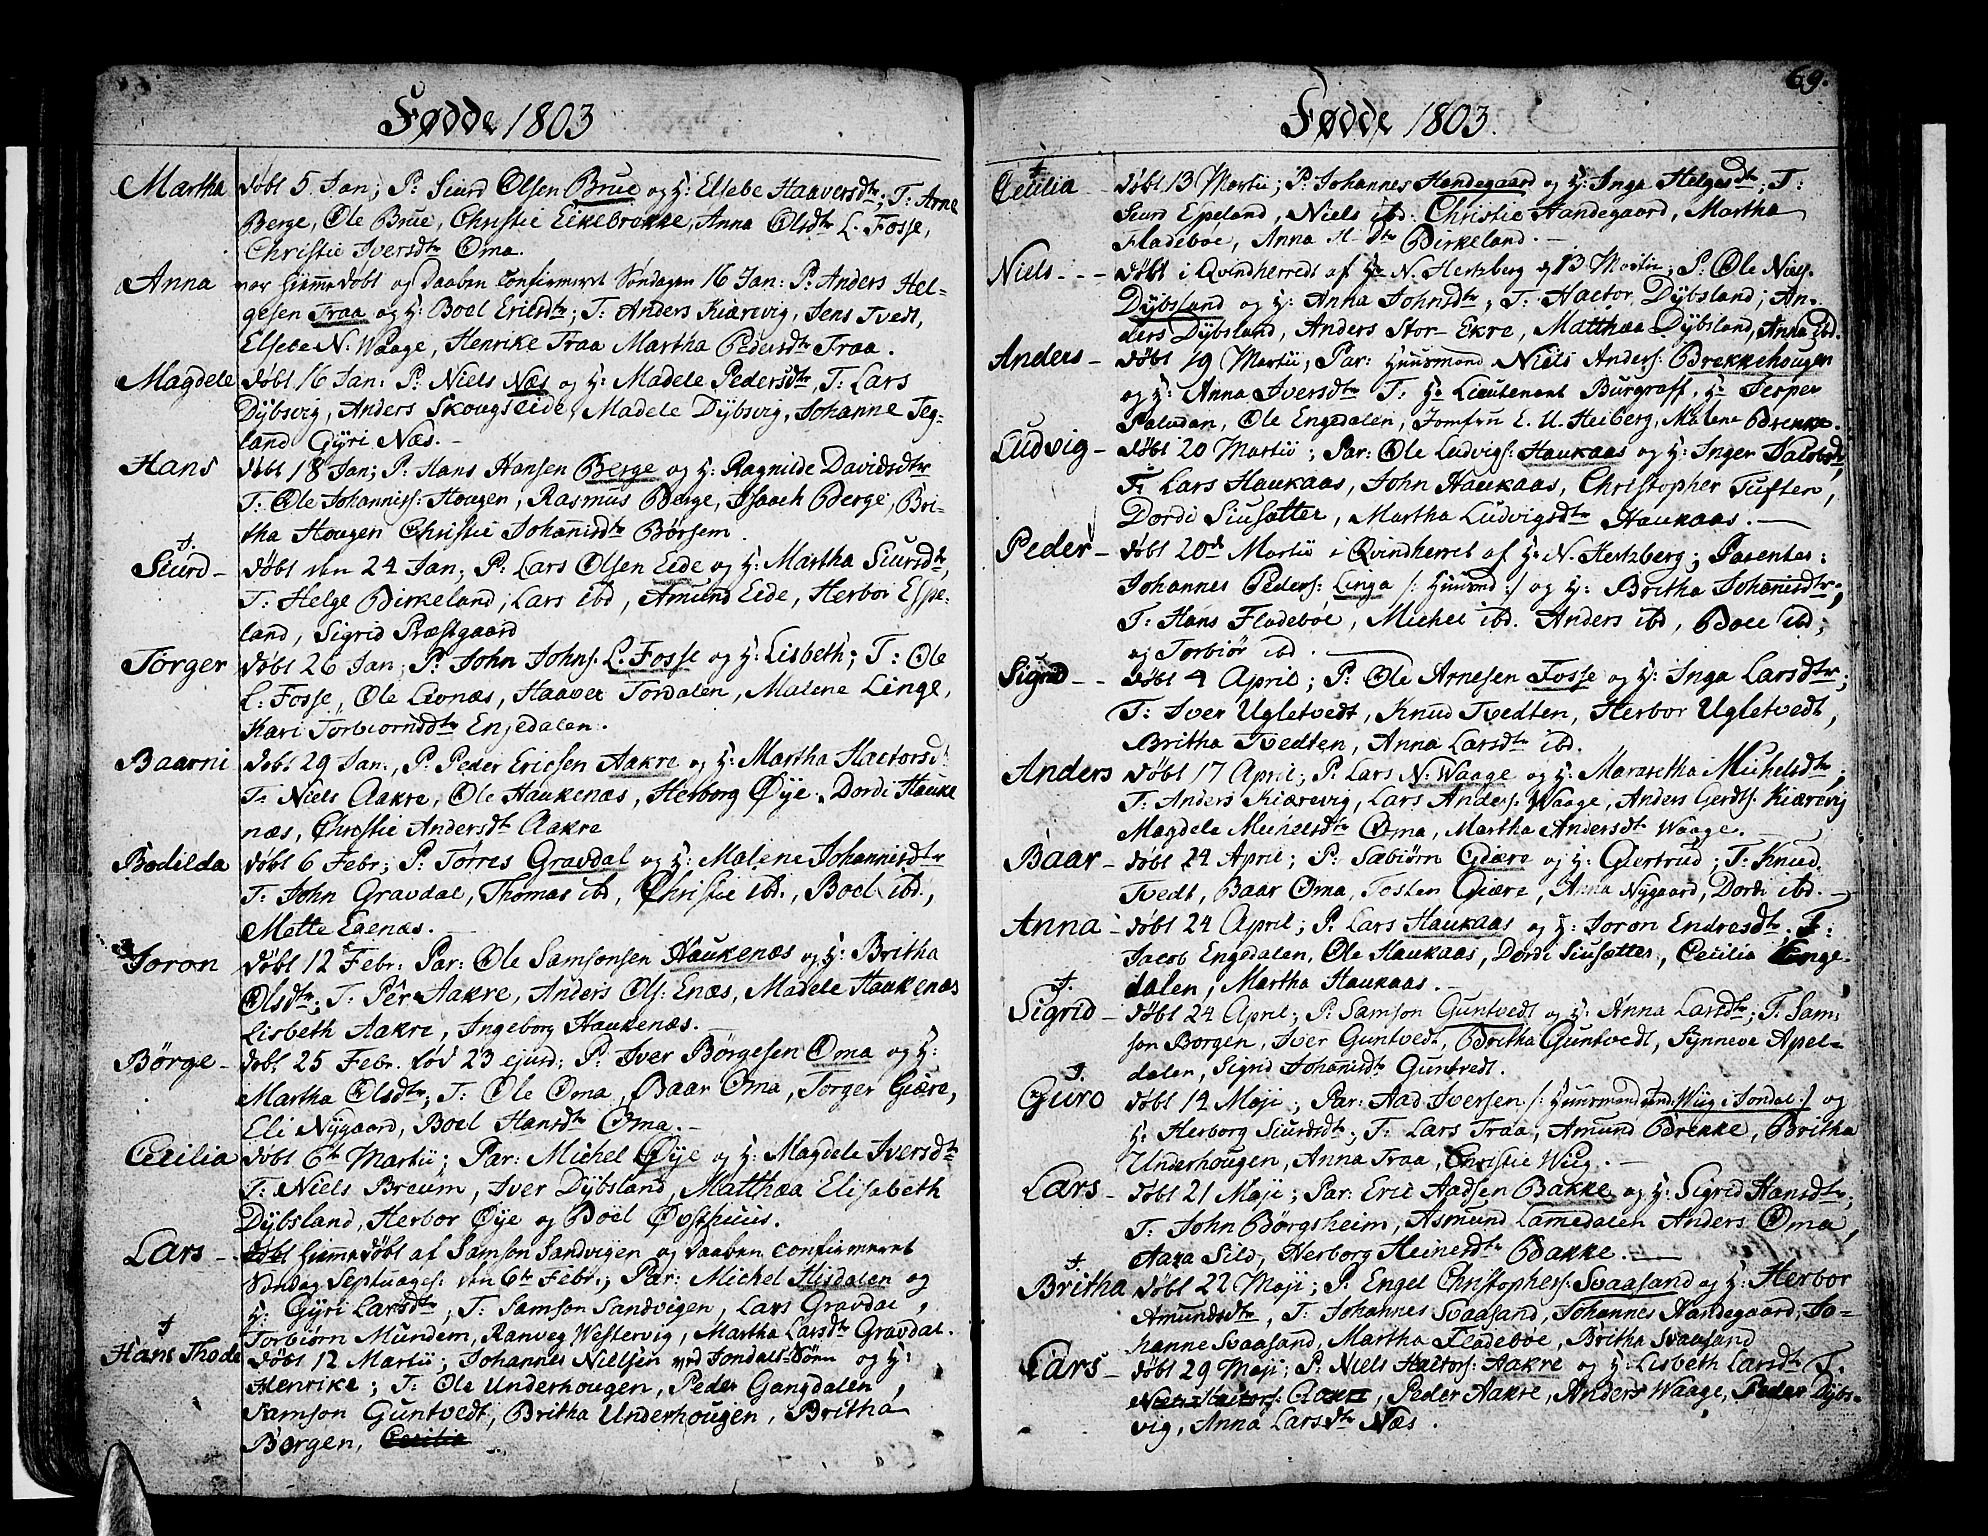 Fødde 1803
Martha døbt 5 Jan; P: Siurd Olsen Brue og H: Ellebe Haaversdtr; T: Arne
Berge, Ole Brue, Christie Eikebrekke, Anna Olsdtr L. Fosse,
Christie Iversdtr Oma.
Anna var hiemmedøbt og Daaben confirmeret Søndagen 16 Jan: P: Anders Hel-
gesen Traa og H: Boel Ericsdtr; T: Anders Kiærevig, Jens Tvedt,
Elsebe N: Waage, Henrike Traa Martha Pedersdtr Traa.
Magdele døbt 16 Jan: P: Niels Næs og H: Madele Pedersdtr, T: Lars
Dybsvig, Anders Skougseide, Madele Dybsvig, Johanne Teg-
land Gyri Næs.
Hans døbt 18 Jan; P: Hans Hansen Berge og H: Ragnilde Davidsdtr
T: Ole Johanniss: Hougen, Rasmus Berge, Isaach Berge, Bri-
tha Hougen Christie Johannisdtr Børsem.
Siurd - døbt den 24 Jan; P: Lars Olsen Eide og H: Martha Siursdtr,
T: Helge Birkeland, Lars ibd, Amund Eide, Herbor Espe-
land, Sigrid Præstgaard
Torger døbt 26 Jan; P: John Johns: L. Fosse og H: Lisbeth; T: Ole
L: Fosse, Ole Leonæs, Haaver Tordalen, Malene Linge,
Kari Torbiornsdtr Engedalen.
Baarni døbt 29 Jan., P: Peder Ericsen Aakre og H: Martha Hactorsdt
T: Niels Aakre, Ole Haukenæs, Herborg Øye, Dordi Hauke
næs, Christie Andersdtr Aakre
Bodilda døbt 6 Febr; P: Torres Gravdal og H: Malene Johannisdtr
T: John Gravdal, Thomas ibd, Christie ibd, Boel ibd,
Mette Eenæs.
Joron døbt 12 Febr: Par: Ole Samsonsen Haukenæs og H: Britha
Olsdtr; T: Per Aakre, Anders Ols: Enæs, Madele Haukenæs
Lisbeth Aakre, Ingeborg Haukenæs.
Børge - døbt 25 Febr. fød 23 ejusd; P: Iver Børgesen Oma og H:
Martha Olsdtr; T: Ole Oma, Baar Oma, Torger Giære,
Eli Nygaard, Boel Hansdtr Oma.
Cecilia døbt 6te Martii; Par: Michel Øye og H: Magdele Iversdtr
T: Niels Breum, Iver Dybsland, Matthæa Elisabeth
Dybsland, Herbor Øye og Boel Østhuus.
Lars - døbt hiemmedøbt af Samson Sandvigen og Daaben confirmeret
Søndag Septuages: den 6te Febr; Par: Michel Hisdalen og
H: Gyri Larsdtr, T: Samson Sandvigen, Lars Gravdal,
Torbiørn Mundem, Ranveg Westervig, Martha Larsdtr Gravdal.
Hans Thode døbt 12 Martii; Johannes Nielsen ved Jondals Øren og H:
Henrike; T: Ole Underhougen, Peder Gangdalen,
Samson Guntvedt, Britha Underhougen, Britha
Borgen, Cecilia
69.
Fødde 1803.
Cecilia - døbt 13 Martii; P: Johannes Handegaard og H: Inga Helgesdtr; T:
Siurd Espeland, Niels ibd. Christie Handegaard, Martha
Fladebøe, Anna H: Dtr Birkeland.
Niels - - - døbt i Qvindherred af Hr N. Hertzberg d 13 Martii; P: Ole Niels:
Dybsland og H: Anna Johnsdtr; T: Hactor Dybsland, An-
ders Dybsland, Anders Stor-Ekre, Matthæa Dybsland, Anna ibd.
Anders - døbt 19 Martii; Par: Huusmand Niels Anders: Brekkehougen
og H: Anna Iversdtr T: Hr Lieutenant Burgraff, Hr Jesper
Paludan, Ole Engedalen, Jomfru E. U. Heiberg, Malene Brekke.
Ludvig - døbt 20 Martii; Par: Ole Ludvigs: Haukaas og H: Inger Jacobsdtr,
T: Lars Haukaas, John Haukaas, Christopher Tuften,
Dordi Siusætter, Martha Ludvigsdtr Haukaas.
Peder - døbt 20de Martii i Qvindherret af Hr N. Hertzberg; Parentes:
Johannes Peders: Linga /: Huusmd :/ og H: Britha Johanisdtr;
T: Hans Fladebøe, Michel ibd. Anders ibd, Boel ibd;
og Torbiør ibd.
Sigrid - - døbt 4 April; P: Ole Arnesen Fosse og H: Inga Larsdtr;
T: Iver Ugletvedt, Knud Tvedten, Herbor Ugletvedt,
Britha Tvedten, Anna Larsdtr ibd.
Anders døbt 17 April; P: Lars N: Waage og H: Maragretha Michelsdtr;
T: Anders Kiærevig, Lars Anders: Waage, Anders Gerdts: Kiærevig
Magdele Michelsdtr Oma, Martha Andersdtr Waage.
Baar - døbt 24 April; P: Sæbiørn Giære og H: Giertrud; T: Knud
Tvedt, Baar Oma, Tosten Giære, Anna Nygaard, Dordi ibd.
Anna - døbt 24 April; P: Lars Haukaas og H: Joron Endresdtr. T:
Jacob Engedalen, Ole Haukaas, Dordi Siusætter, Cecilia Enge-
dalen, Martha Haukaas.
Sigrid - døbt 24 April; P: Samson Guntvedt og H: Anna Larsdtr; T. Sam-
son Borgen, Iver Guntvedt, Britha Guntvedt, Synneve Apel-
dalen, Sigrid Johanisdtr Guntvedt.
Guro døbt 14 Maji; Par: Aad Iversen /: Huusmand und: Wiig i Jondal :/ og
H: Herborg Siurdsdtr; T: Lars Traa, Amund Brekke, Britha
Underhougen, Anna Traa, Christie Wiig.
Lars - døbt 21 Maji; Par: Eric Aadsen Bakke og H: Sigrid Hansdtr;
T: John Børgsheim, Asmund Lamedalen Anders Oma,
Aasa Sild, Herborg Heinesdtr Bakke.
Britha døbt 22 Maji; P: Engel Christophers: Svaasand og H: Herbor
Amundsdtr, T: Johannes Svaasand, Johannes Handegaard, Jo-
hanne Svaasand, Martha Fladebøe, Britha Svaasand
Lars - døbt 29 Maji; P: Niels Hactors: Aakre og H: Lisbeth Larsdtr T:
Niels Hactors: Aakre, Peder Aakre, Anders Waage, Peder Dybs-
vig, Anna Larsdtr Næs.